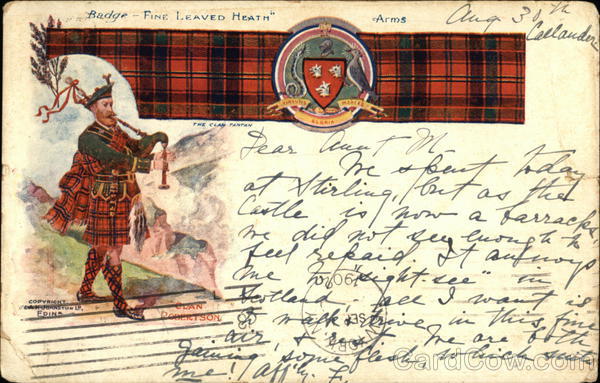 Badge - FINE LEAVED HEATH"
Arms
Aug 30th
Callander
VIRTUTIS GLORIA MERCES
THE CLAN TARTAN
Dear Aunt M.
We spent today
at Stirling, but as the
Castle is now a barracks,
we did not see enough to
feel repaid. It annoys
me to "sight see" in
Scotland. all I want is
to walk & drive in this fine
air, & We are both
gaining some flesh, which
me! Aff'ly F.
COPYRIGHT
W. & A.K. JOHNSTON LD
EDINR
CLAN
ROBERTSON
CardCow.com